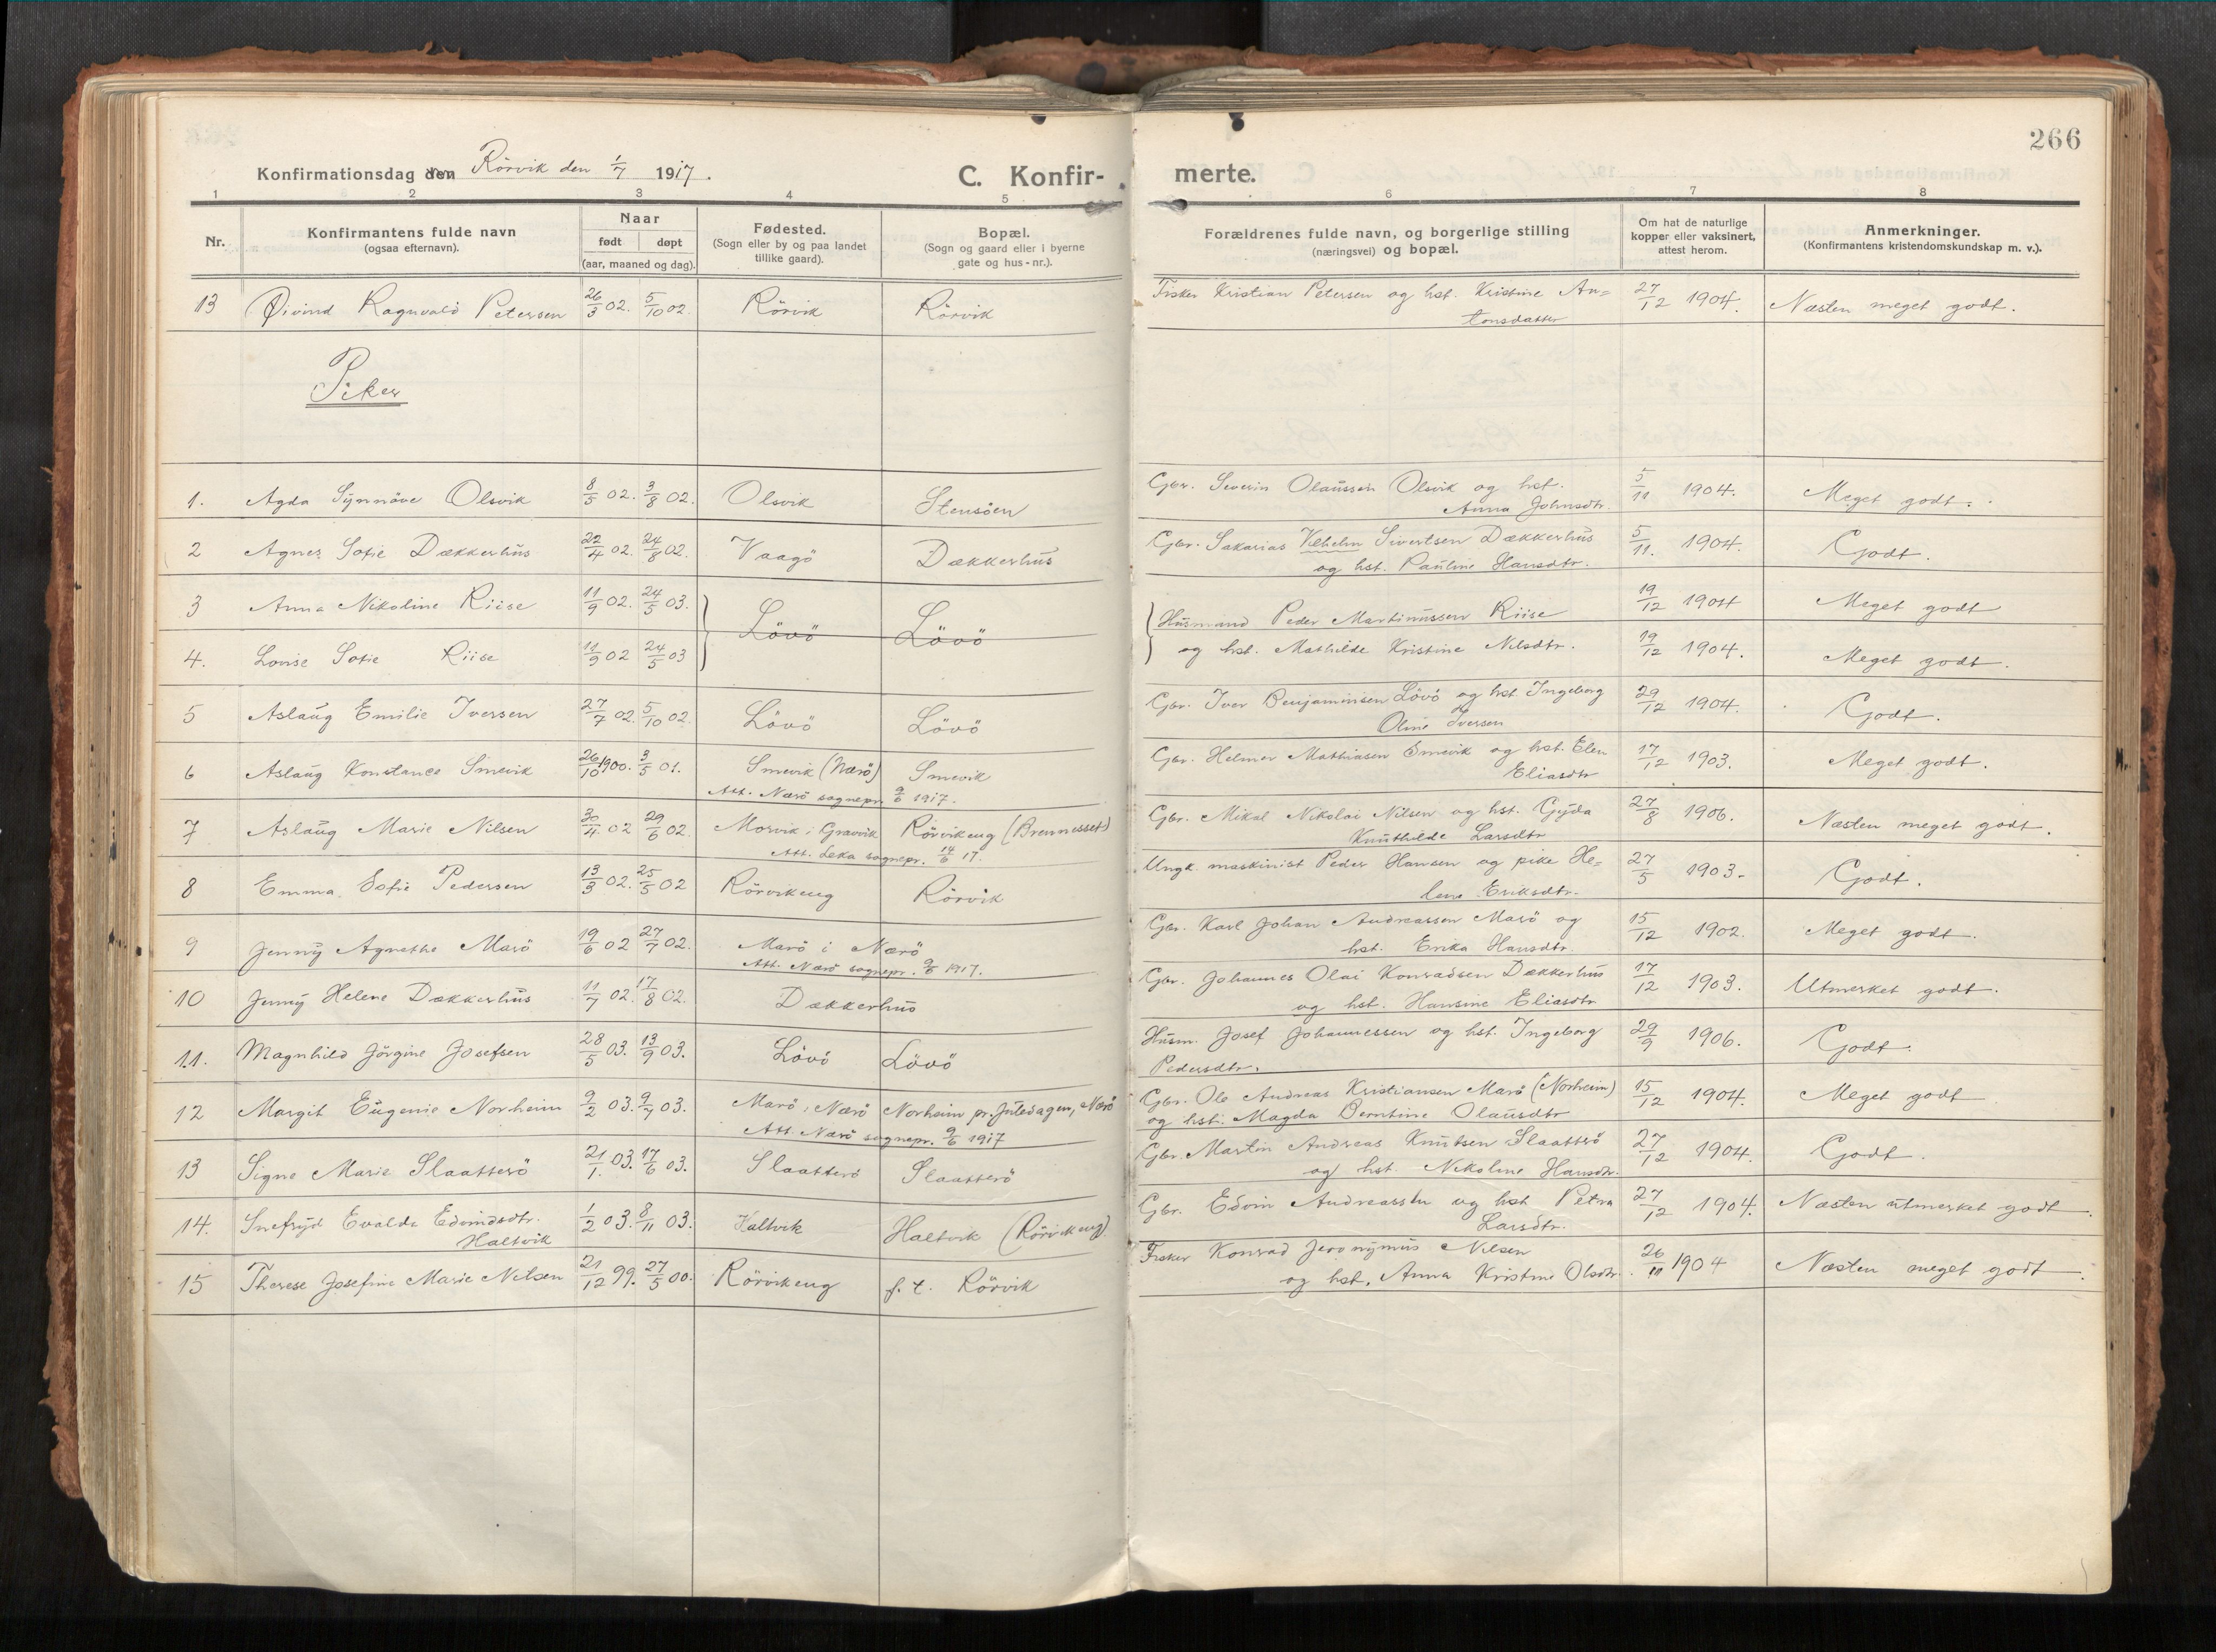 266
Konfirmationsdag den Rörvik den 1/7 1917.
C. Konfir- merte.
1 2 3 4 5 6 7 8
Nr. Konfirmantens fulde navn (ogsaa efternavn). Naar født døpt (aar, maaned og dag). Fødested. (Sogn eller by og paa landet tillike gaard). Bopæl. (Sogn og gaard eller i byerne gate og hus-nr.). Forældrenes fulde navn, og borgerlige stilling (næringsvei) og bopæl. Om hat de naturlige kopper eller vaksinert, attest herom. Anmerkninger. (Konfirmantens kristendomskundskap m. v.).
13 Øivind Ragnvald Petersen 26/3 02. 5/10 02 Rörvik Rörvik Fisker Kristian Petersen og hst. Kristine An= 27/12 1904. Næsten meget godt.
tonsdatter
Piker
1. Agda Synnöve Olsvik 8/5 02. 3/8 02. Olsvik Stensöen Gbr. Severin Olaussen Olsvik og hst. 5/11 1904. Meget godt.
Anna Johnsdtr.
2 Agnes Sofie Dækkerhus 22/4 02. 24/8 02. Vaagö Dækkerhus Gbr. Sakarias Vilhelm Sivertsen Dækkerhus 5/11. 1904. Godt.
og hst. Pauline Hansdtr.
3 Anna Nikoline Riise 11/9 02. 24/5 03. Lövö Lövö Husmand Peder Martinussen Riise 19/12 1904 Meget godt
4. Lovise Sofie Riise 11/9 02 24/5 03 og hst. Mathilde Kristine Nilsdtr. 19/12 1904. Meget godt.
5 Aslaug Emilie Iversen 27/7 02. 5/10 02. Lövö Lövö Gbr. Iver Benjaminsen Lövö og hst Ingeborg 29/12 1904. Godt.
Oline Iversen
6 Aslaug Konstance Smevik 26/10 1900. 3/5 01. Smevik (Nærö) Smevik Gbr. Helmer Mathiasen Smevik og hst. Elen 17/12 1903. Meget godt.
Att. Nærö sognepr. 9/6 1917. Eliasdtr
7 Aslaug Marie Nilsen 30/4 02 29/6 02. Morvik i Gravvik Rörvikeng (Brennesset) Gbr. Mikal Nikolai Nilsen og hst. Gyda 27/8 1906. Næsten meget godt.
Att. Leka sognepr. 14/6 17. Knuthilde Larsdtr
8 Emma Sofie Pedersen 13/3 02. 25/5 02 Rörvikeng Rörvik Ungk. maskinist Peder Hansen og pike He= 27/5 1903. Godt.
lene Eriksdtr.
9 Jenny Agnethe Marö 19/6 02 27/7 02. Marö i Nærö Gbr. Karl Johan Andreassen Marö og 15/12 1902. Meget godt.
Att. Nærö sognepr. 9/6 1917. hst. Erika Hansdtr.
10 Jenny Helene Dækkerhus 11/7 02. 17/8 02. Dækkerhus Gbr. Johannes Olai Konradsen Dækkerhus 17/12 1903. Utmerket godt.
og hst. Hansine Eliasdtr
11. Magnhild Jörgine Josefsen 28/5 03. 13/9 03. Lövö Lövö Husm. Josef Johannessen og hst. Ingeborg 29/9 1906. Godt.
Pedersdtr.
12 Margit Eugenie Norheim 9/2 03. 9/7 03. Marö, Nærö Norheim pr. Juledagen, Nærö Gbr. Ole Andreas Kristiansen Marö (Norheim) 15/12 1904. Meget godt
Att. Nærö sognepr. 9/6 1917 og hst. Magda Berntine Olausdtr
13 Signe Marie Slaatterö 21/1. 03. 17/6 03. Slaatterö Slaatterö Gbr. Martin Andreas Knutsen Slaatterö 27/12 1904. Godt.
og hst. Nikoline Hansdtr.
14. Snefryd Evalda Edvindsdtr. 1/2 03. 8/11 03. Haltvik Haltvik (Rörvikeng). Gbr. Edvin Andreassen og hst Petra 27/12 1904. Næsten utmerket godt.
Haltvik Larsdtr.
15 Therese Josefine Marie Nilsen 21/12 99. 27/5 00. Rörvikeng f. t. Rörvik Fisker Konrad Jeronymus Nilsen 26/11 1904 Næsten meget godt.
og hst. Anna Kristine Olsdtr.